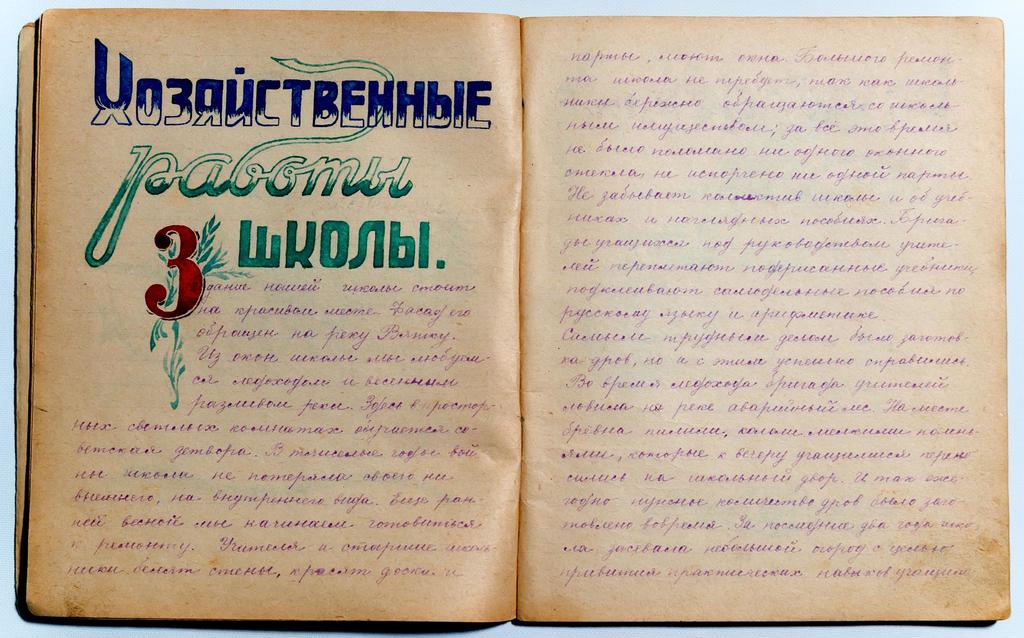 Хозяйственные
работы
школы.
Здание нашей школы стоит
на красивом месте. Фасад его
обращен на реку Вятку.
Из окон школы мы любуем-
ся ледоходом и весенним
разливом реки. Здесь в простор-
ных светлых комнатах обучается со-
ветская детвора. В тяжелые годы вой
ны школа не потеряла своего ни
внешнего, на внутреннего вида. Еще ран-
ней весной мы начинаем готовиться
к ремонту. Учителя и старшие школь
ники белят стены, красят доски и
парты, моют окна. Большого ремон-
та школа не требует, так как школь-
ники бережно обращаются со школь-
ным имуществом; за всё это время
не было поломано ни одного оконного
стекла, не испорчено ни одной парты.
Не забывает коллектив школы и об учеб-
никах и наглядных пособиях. Брига-
ды учащихся под руководством учите-
лей переплетают подержанные учебники,
подклеивают самодельные пособия по
русскому языку и арифметике.
Самым трудным делом было заготов-
ка дров, но и с этим успешно справились.
Во время ледохода бригада учителей
ловила на реке аварийный лес. На месте
бревна пилили, кололи мелкими полень-
ями, которые к вечеру учащимися перено
сились на школьный двор. И так еже-
годно нужное количество дров было заго-
товлено вовремя. За последние два года шко-
ла засевала небольшой огород с целью
привития практических навыков учащимся